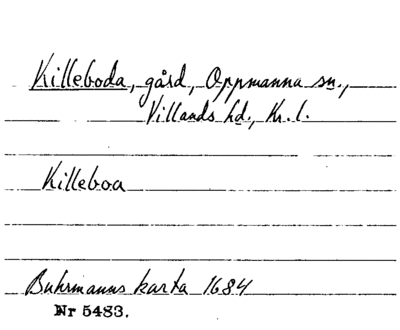 Killeboda, gård, Oppmanna sn.,
Villands hd., Kr. l.
Killeboa
Buhrmanns karta 1684
Nr 5483.